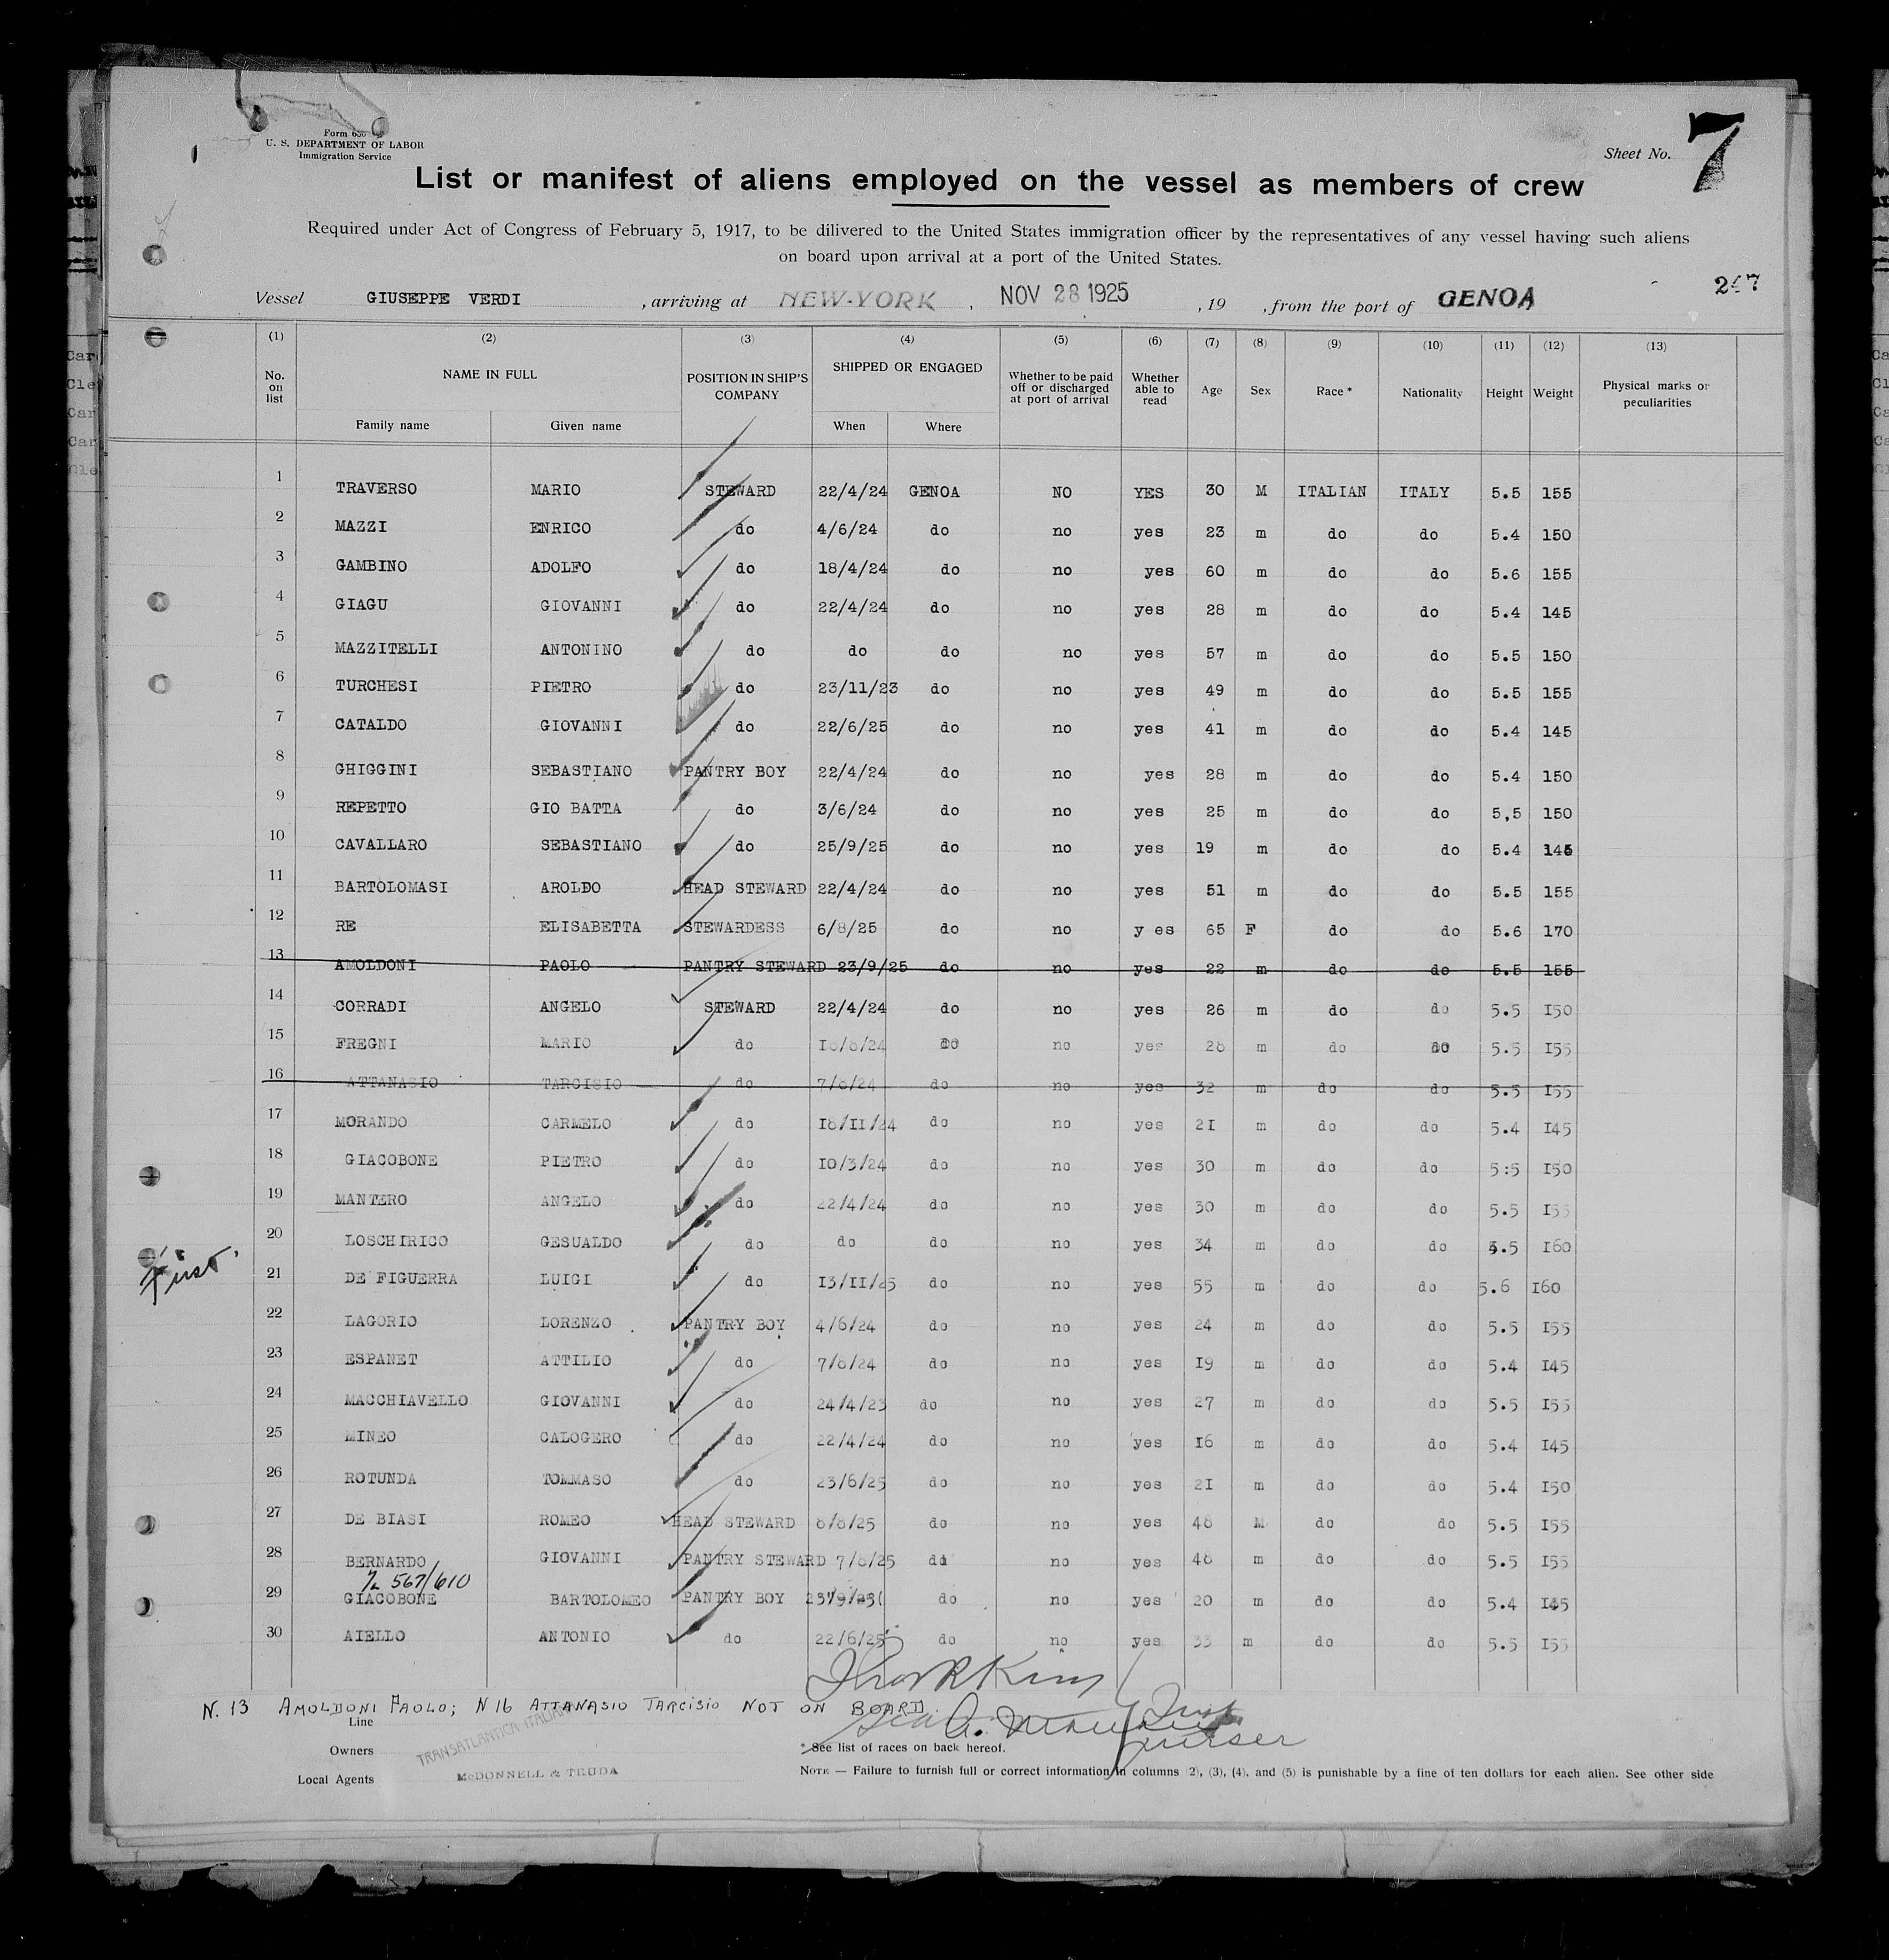 Form 630
U. S. DEPARTMENT OF LABOR
Immigration Service
Sheet No. 7
List or manifest of aliens employed on the vessel as members of crew
Required under Act of Congress of February 5, 1917, to be dilivered to the United States immigration officer by the representatives of any vessel having such aliens
on board upon arrival at a port of the United States.
Vessel GIUSEPPE VERDI , arriving at NEW-YORK , NOV 28 1925 , 19 , from the port of GENOA
(1) (2) (3) (4) (5) (6) (7) (8) (9) (10) (11) (12) (13)
No. on list NAME IN FULL POSITION IN SHIP'S COMPANY SHIPPED OR ENGAGED Whether to be paid off or discharged at port of arrival Whether able to read Age Sex Race * Nationality Height Weight Physical marks or peculiarities
Family name Given name When Where
1 TRAVERSO MARIO STEWARD 22/4/24 GENOA NO YES 30 M ITALIAN ITALY 5.5 155
2 MAZZI ENRICO do 4/6/24 do no yes 23 m do do 5.4 150
3 GAMBINO ADOLFO do 18/4/24 do no yes 60 m do do 5.6 155
4 GIAGU GIOVANNI do 22/4/24 do no yes 28 m do do 5.4 145
5 MAZZITELLI ANTONINO do do do no yes 57 m do do 5.5 150
6 TURCHESI PIETRO do 23/11/23 do no yes 49 m do do 5.5 155
7 CATALDO GIOVANNI do 22/6/25 do no yes 41 m do do 5.4 145
8 GHIGGINI SEBASTIANO PANTRY BOY 22/4/24 do no yes 28 m do do 5.4 150
9 REPETTO GIO BATTA do 3/6/24 do no yes 25 m do do 5,5 150
10 CAVALLARO SEBASTIANO do 25/9/25 do no yes 19 m do do 5.4 145
11 BARTOLOMASI AROLDO HEAD STEWARD 22/4/24 do no yes 51 m do do 5.5 155
12 RE ELISABETTA STEWARDESS 6/8/25 do no y es 65 F do do 5.6 170
13 AMOLDONI PAOLO PANTRY STEWARD 23/9/25 do no yes 22 m do do 5.5 155
14 CORRADI ANGELO STEWARD 22/4/24 do no yes 26 m do do 5.5 I50
15 FREGNI MARIO do do no yes 28 m do do 5.5 I55
16 ATTANASIO TARCISIO do 7/8/24 do no yes 32 m do do 5.5 I55
17 MORANDO CARMELO do I8/II/24 do no yes 2I m do do 5.4 I45
18 GIACOBONE PIETRO do I0/3/24 do no yes 30 m do do 5:5 I50
19 MANTERO ANGELO do 22/4/24 do no yes 30 m do do 5.5 I55
20 LOSCHIRICO GESUALDO do do do no yes 34 m do do 5.5 I60
21 DE FIGUERRA LUIGI do I3/II/25 do no yes 55 m do do 5.6 I60
22 LAGORIO LORENZO PANTRY BOY 4/6/24 do no yes 24 m do do 5.5 I55
23 ESPANET ATTILIO do 7/8/24 do no yes I9 m do do 5.4 I45
24 MACCHIAVELLO GIOVANNI do 24/4/23 do no yes 27 m do do 5.5 I55
25 MINEO CALOGERO do 22/4/24 do no yes I6 m do do 5.4 I45
26 ROTUNDA TOMMASO do 23/6/25 do no yes 2I m do do 5.4 I50
27 DE BIASI ROMEO HEAD STEWARD 8/8/25 do no yes 48 M do do 5.5 I55
28 BERNARDO GIOVANNI PANTRY STEWARD 7/8/25 do no yes 48 m do do 5.5 I55
567/610
29 GIACOBONE BARTOLOMEO PANTRY BOY do no yes 20 m do do 5.4 I45
30 AIELLO ANTONIO do 22/6/25 do no yes 33 m do do 5.5 I55
N. 13 AMOLDONI PAOLO; N 16 ATTANASIO TARCISIO NOT ON BOARD
Line TRANSATLANTICA ITALIANA
Owners
Local Agents McDONNELL & TRUDA
Purser
* See list of races on back hereof.
NOTE — Failure to furnish full or correct information in columns (2), (3), (4), and (5) is punishable by a fine of ten dollars for each alien. See other side